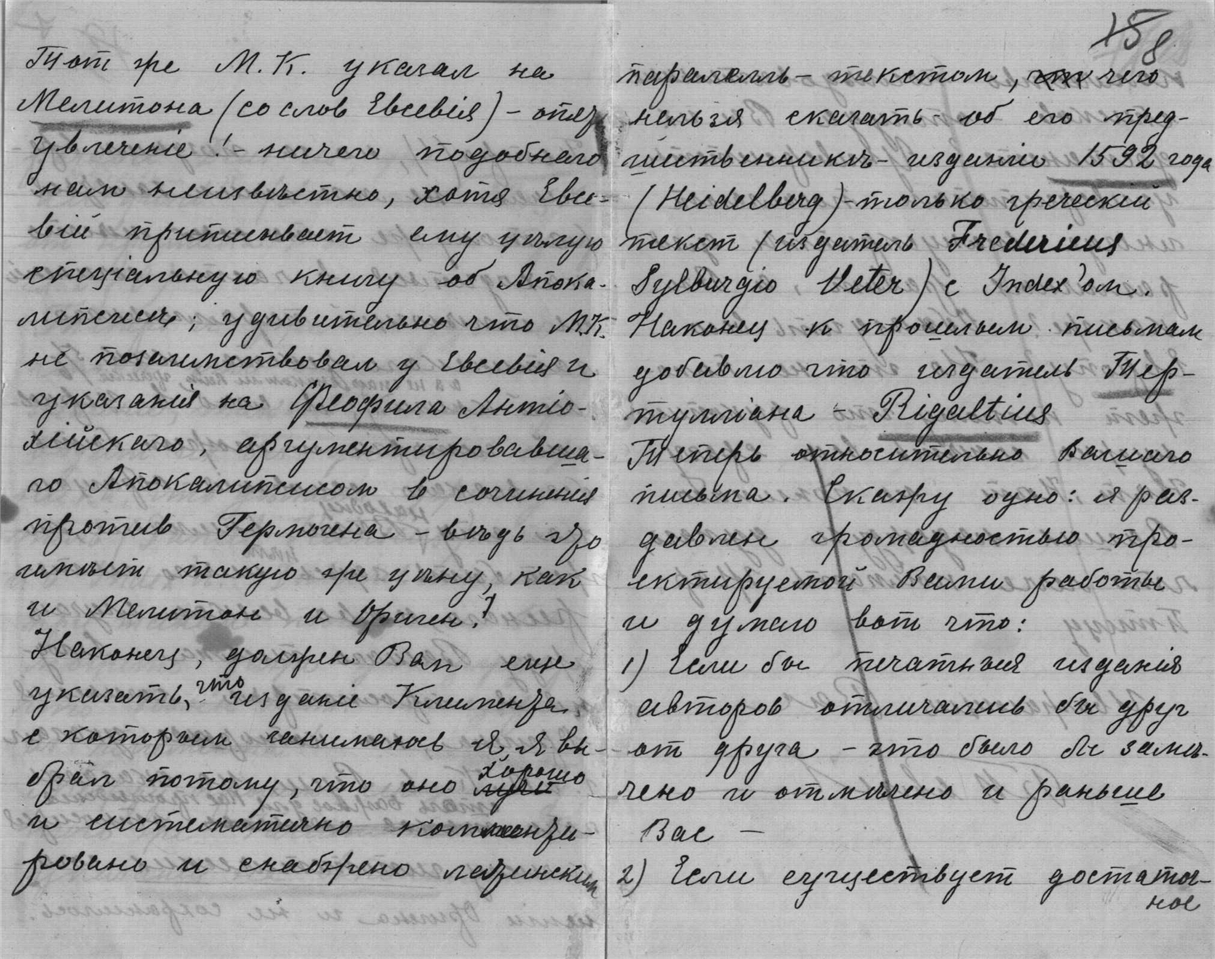 Тот же М.К. указал на
Мелитона (со слов Евсевія) – опять
увлеченіе! – ничего подобнаго
нам неизвѣстно, хотя Евсе-
вій приписывает ему цѣлую
спеціальную книгу об Апока-
липсисѣ; удивительно что М.К.
не позаимствовал у Евсевія и
указанія на Феофила Антіо-
хійскаго, аргументировавша-
го Апокалипсисом в сочиненіи
против Гермогена – вѣдь это
имѣет такую же цѣну, как
и Мелитон и Ориген!
Наконец, должен Вам еще
указать, что изданіе Климента,
с которым занимаюсь я, я вы-
брал потому, что оно хорошо
и систематично комменти-
ровано и снабжено латинским
158
паралелль – текстом, чего
нельзя сказать об его пред-
шественникѣ – изданіи 1592 года
(Heidelberg) – только греческій
текст (издатель Fredericus
Sylburgio Veter) с Index'ом.
Наконец к прошлым письмам
добавлю что издатель Тер-
тулліана – Rigaltius
Теперь относительно Вашего
письма. Скажу одно: я раз-
давлен громадностью про-
ектируемой Вами работы
и думаю вот что:
1) Если бы печатныя изданія
авторов отличались бы друг
от друга – это было бы замѣ-
чено и отмѣчено и раньше
Вас –
2) Если существует достаточ-
ное